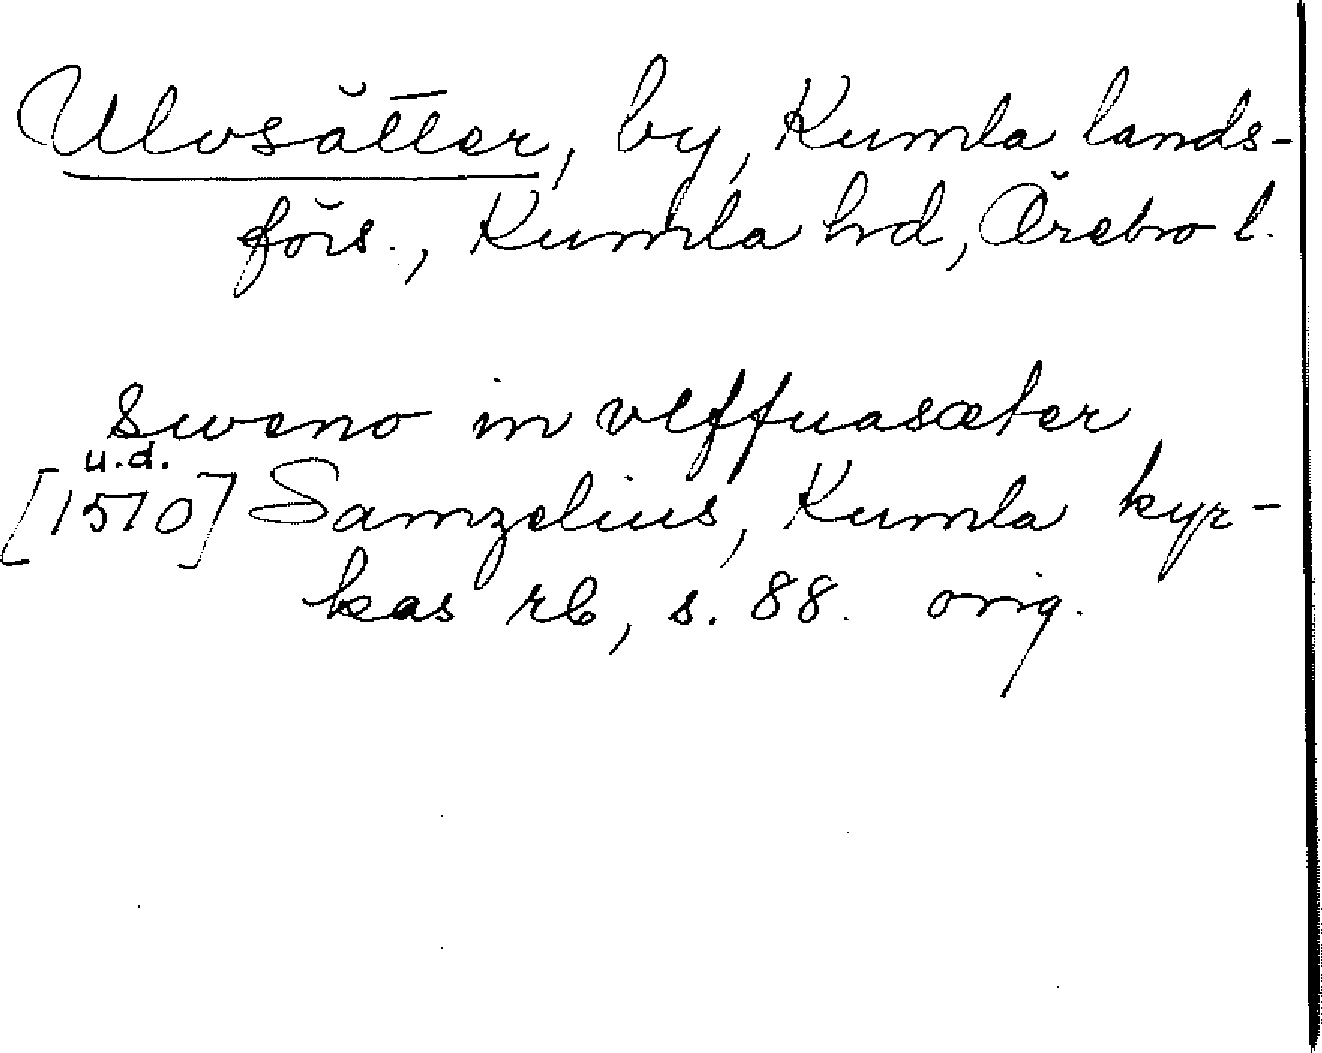 Ulvsätter, by, Kumla lands-
förs., Kumla hd, Örebro l.
Sweno in vlffuasæter
u.d.
[1510] Samzelius, Kumla kyr-
kas rb, s. 88. orig.